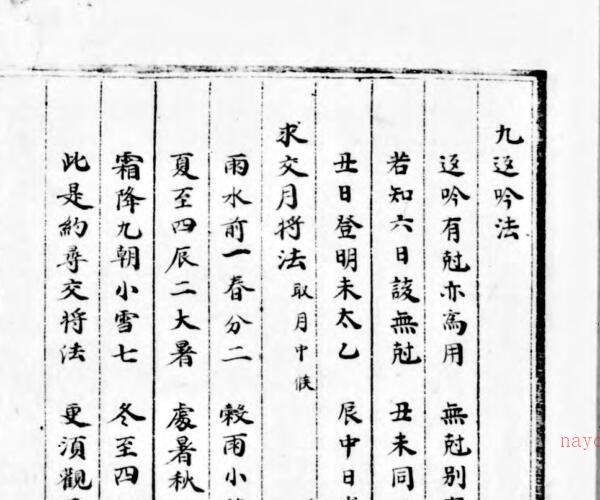 九返吟法
返吟有尅亦爲用 無尅別
若知六日該無尅 丑未同
丑日登明未太乙 辰中日
求交月将法 取月中候
雨水前一春分二 榖雨小
夏至四辰二大暑 處暑秋
霜降九朝小雪七 冬至四
此是約尋交将法 更須觀
nayo